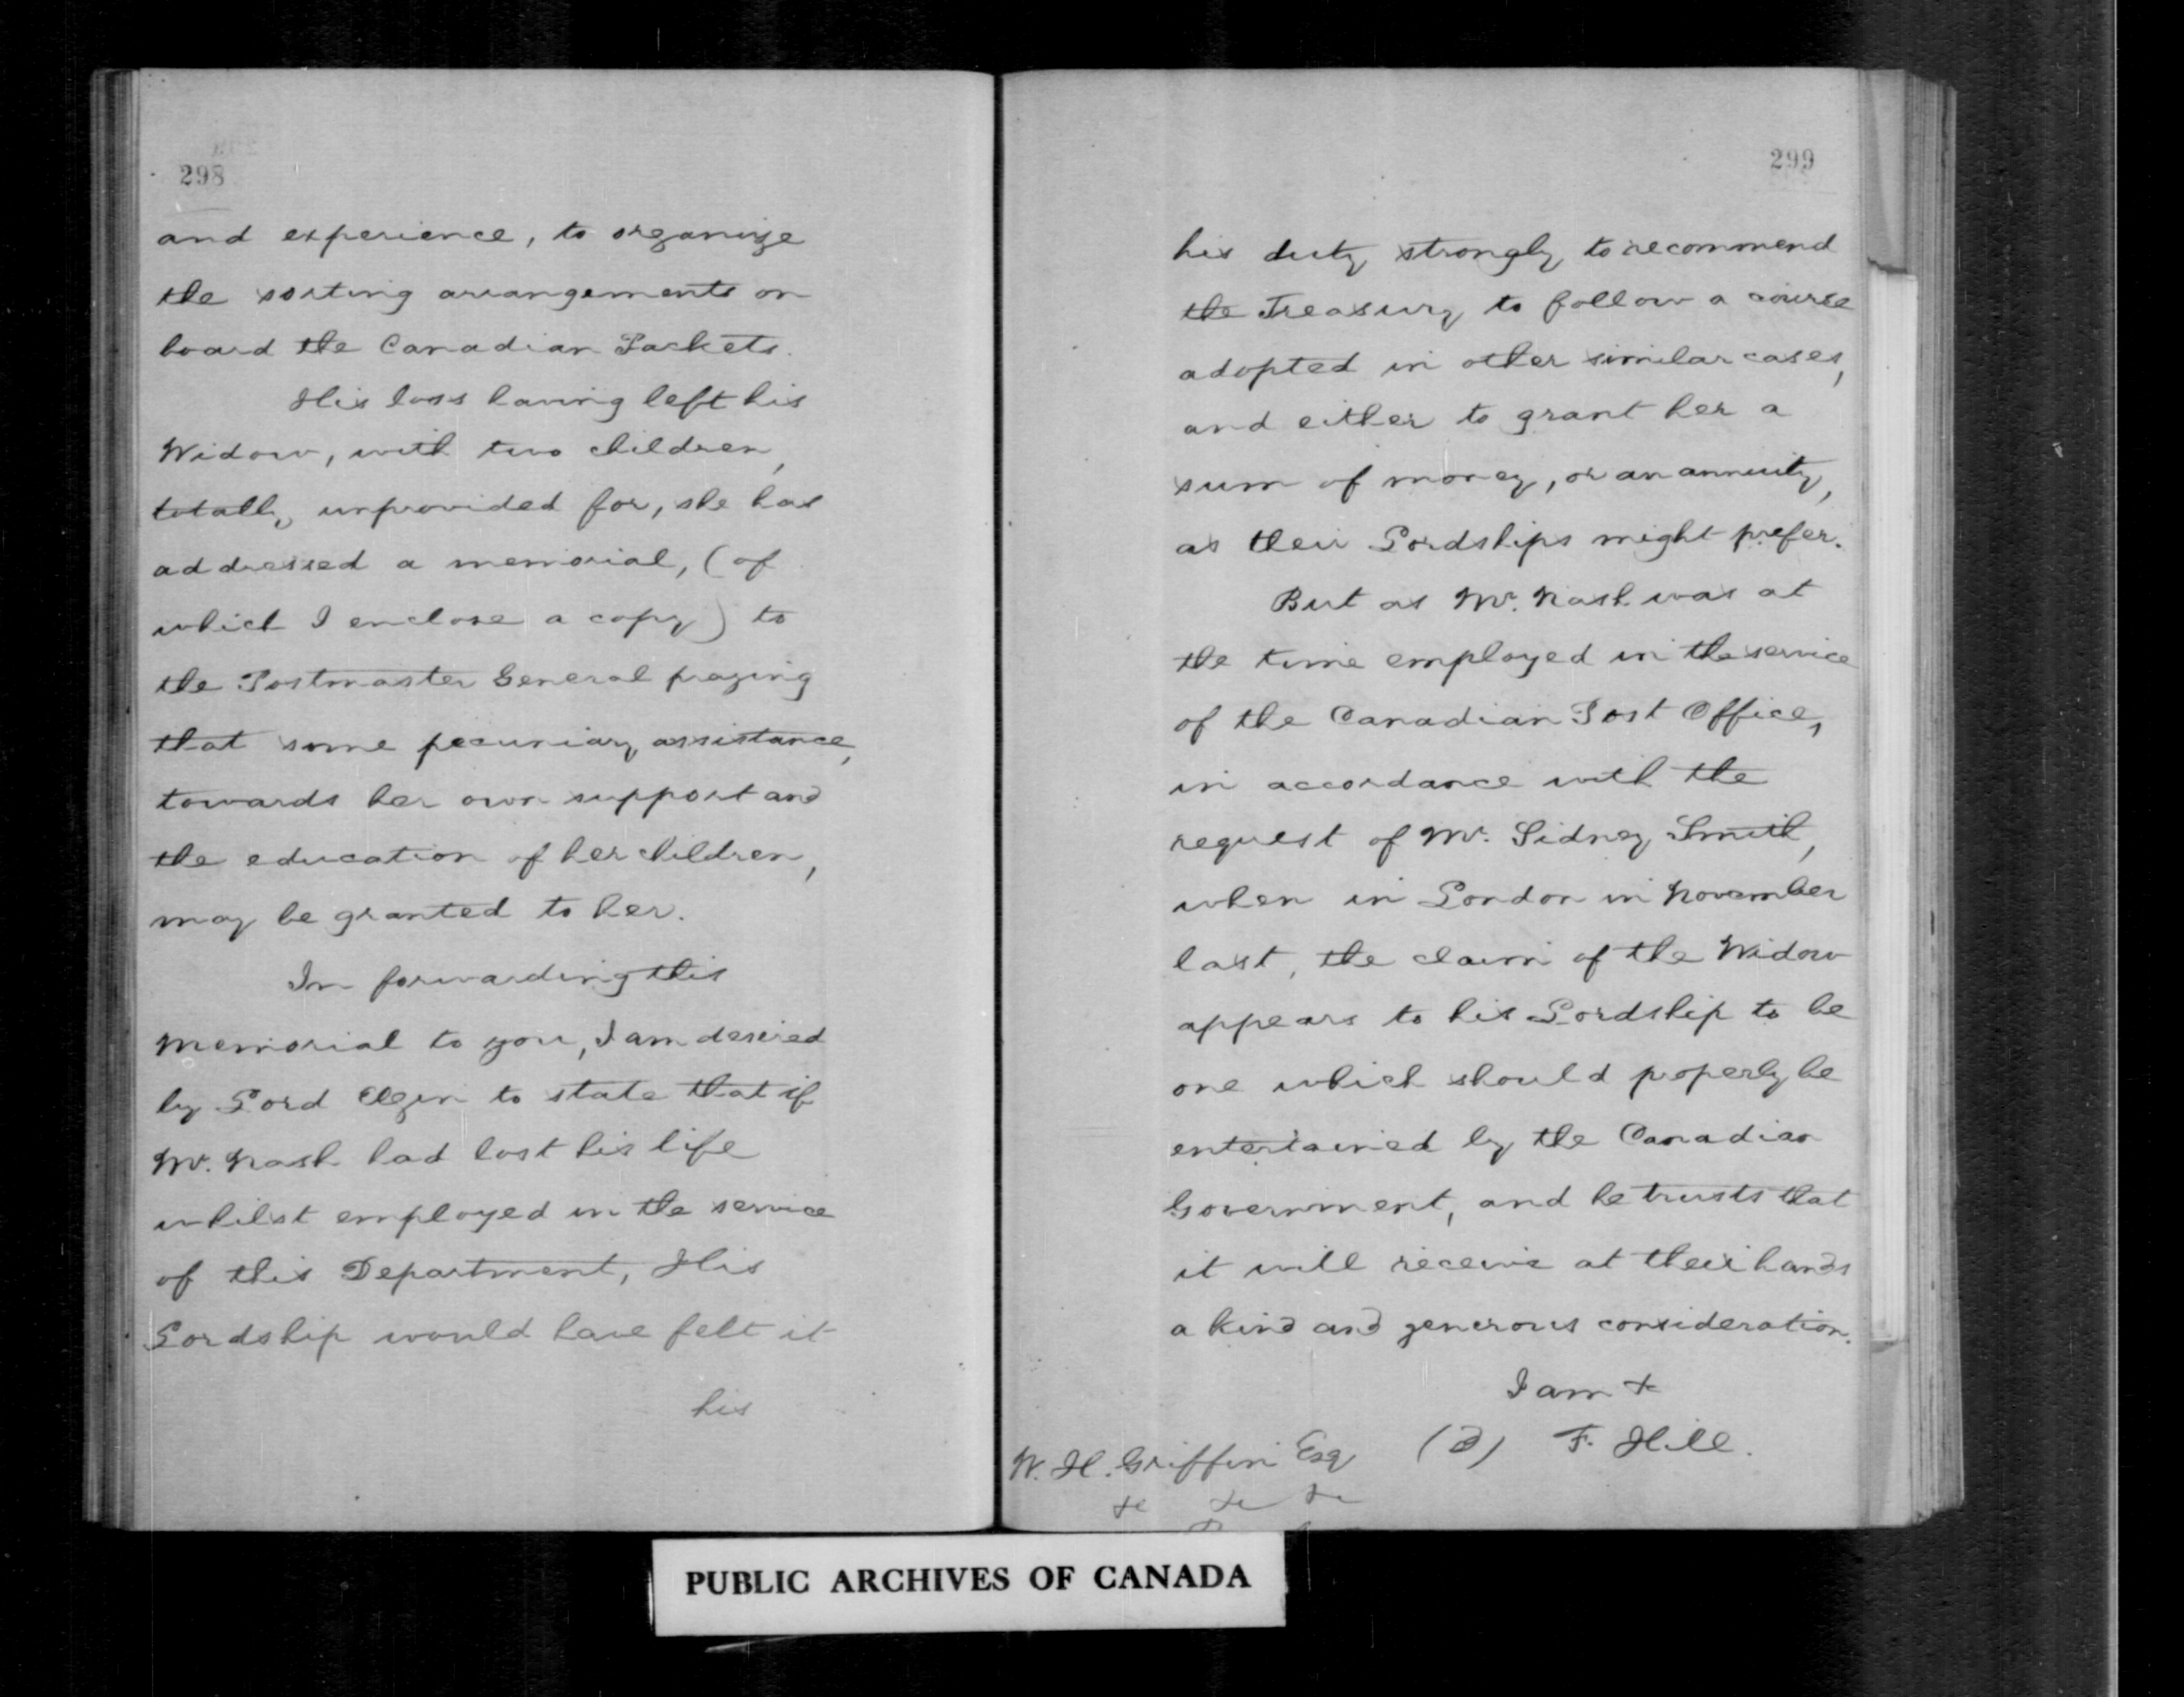 298
and experience, to organize
the sorting arrangements on
board the Canadian Packets.
His loss having left his
Widow, with two children,
totally unprovided for, she has
addressed a memorial, (of
which I enclose a copy) to
the Postmaster General praying
that some pecuniary assistance,
towards her own support and
the education of her children,
may be granted to her.
In forwarding this
memorial to you, I am desired
by Lord Elgin to state that if
Mr. Nash had lost his life
whilst employed in the service
of this Department, His
Lordship would have felt it
his
299
his duty strongly to recommend
the Treasury to follow a course
adopted in other similar cases,
and either to grant her a
sum of money, or an annuity,
as their Lordships might prefer.
But as Mr. Nash was at
the time employed in the service
of the Canadian Post Office,
in accordance with the
request of Mr. Sidney Smith,
when in London in November
last, the claim of the Widow
appears to his Lordship to be
one which should properly be
entertained by the Canadian
Government, and he trusts that
it will receive at their hands
a kind and generous consideration.
I am &
F. Hill.
W. H. Griffin Esq
&c &c &c
PUBLIC ARCHIVES OF CANADA